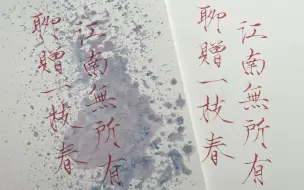 江南無所有
聊贈一枝春
江南無所有
聊贈一枝春